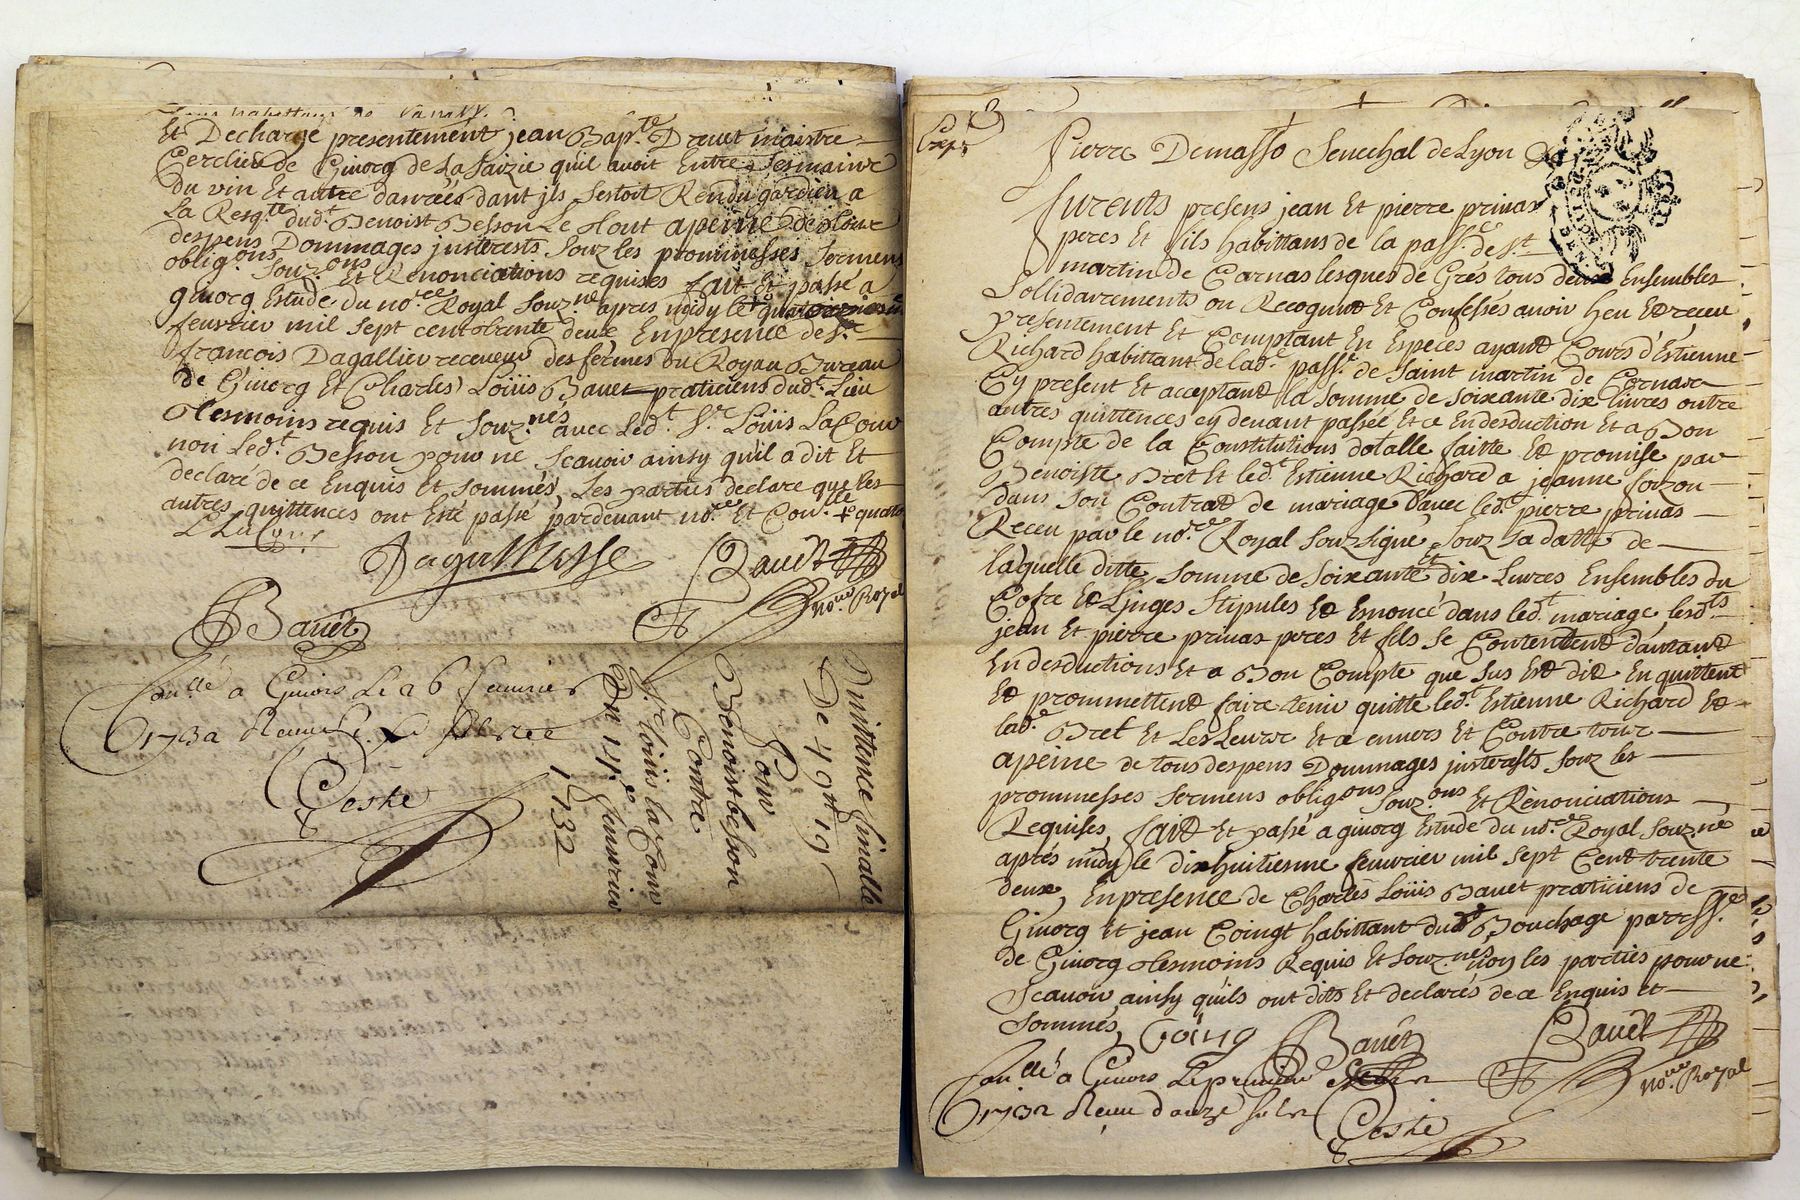 Et Decharge presentement jean Bap.te Drevet maistre
Cerclier de Givorg de La Saizie quil avoit Entre Ses mains
du vin Et autre danrées dant jls Sestoit Rendu gardien a
La Reqte dudt Benoist Besson Le tout apeine de tous
despens Dommages jnsterests Souz les prommesses Sermens
obligons Souzons Et Renonciations requises fait Et passé a
givorg Estude du nore Royal Souzné apres midy le
feuvrier mil sept cent trente deux En presence de Sr
francois Dagallier receveur des fermes du Roy au Bureau
de Givorg Et Charles Loüis Bavet praticiens dudt Lieu
tesmoins requis Et Souznés avec Ledt Sr Loüis La Cour
non Ledt Besson pour ne Scavoir ainsy quil a dit Et
declaré de ce Enquis Et Sommés, Les parties declare que les
autres quittences ont Esté passé pardevant nore Et
L LaCour
Bavet
Bavet
nore Royal
a Givors Le 26
1732
Coste
Quittance finalle
De 49ll 19s
Pour
Benoist besson
Contre
Sr Loüis la Cour
Du 14e feuvrier
1732
Pierre Demasso Senechal de Lyon
furents presens jean Et pierre primas
peres Et fils habittans de la passe de St
martin de Cornas lesques de Gres tous deux Ensembles
Sollidairements on Recogunt Et Confessés avoir heu Et receu
presentement Et Comptant En Especes ayant Cours d'Estienne
Richard habittant de lade passe de Saint martin de Cornas
Cy present Et acceptant la Somme de Soixante dix livres outre
autres quittences cy devant passée Et ce En desduction Et a Bon
Compte de la Constitutions dotalle faitte Et promise par
Benoiste Bret Et ledt Estienne Richard a jeanne
dans Son Contrat de mariage d'avec ledt pierre primas
Receu par le nore Royal Souzsigné Souz Sa datte de
laquelle ditte Somme de Soixante Et dix Livres Ensembles du
Cofre Et Linges Stipules Et Ennoncé dans ledt mariage, lesdts
jean Et pierre primas peres Et fils Se Contentent d'autant
En desductions Et a Bon Compte que Sus Est dit En quittent
Et prommettent faire tenir quitte ledt Estienne Richard Et
lade Bret Et Les Leurs Et ce envers Et Contre tous
apeine de tous despens Dommages jnsterests Souz les
prommesses Sermens obligons Souzons Et Renonciations
Requises, fait Et passé a givorg Estude du nore Royal Souzné
aprés midy le dix huitiesme feuvrier mil Sept Cent trente
deux, En presence de Charles Loüis Bavet praticiens de
Givorg Et jean Coingt habittant du Bouchage paroisse
de Givorg tesmoins Requis Et Souznés non les parties pour ne
Scavoir ainsy quils ont dits Et declarés de ce Enquis et
Sommés,
Coing
Bavet
Bavet
nore Royal
a Givors Le premier
1732 Receu douze sols
Coste